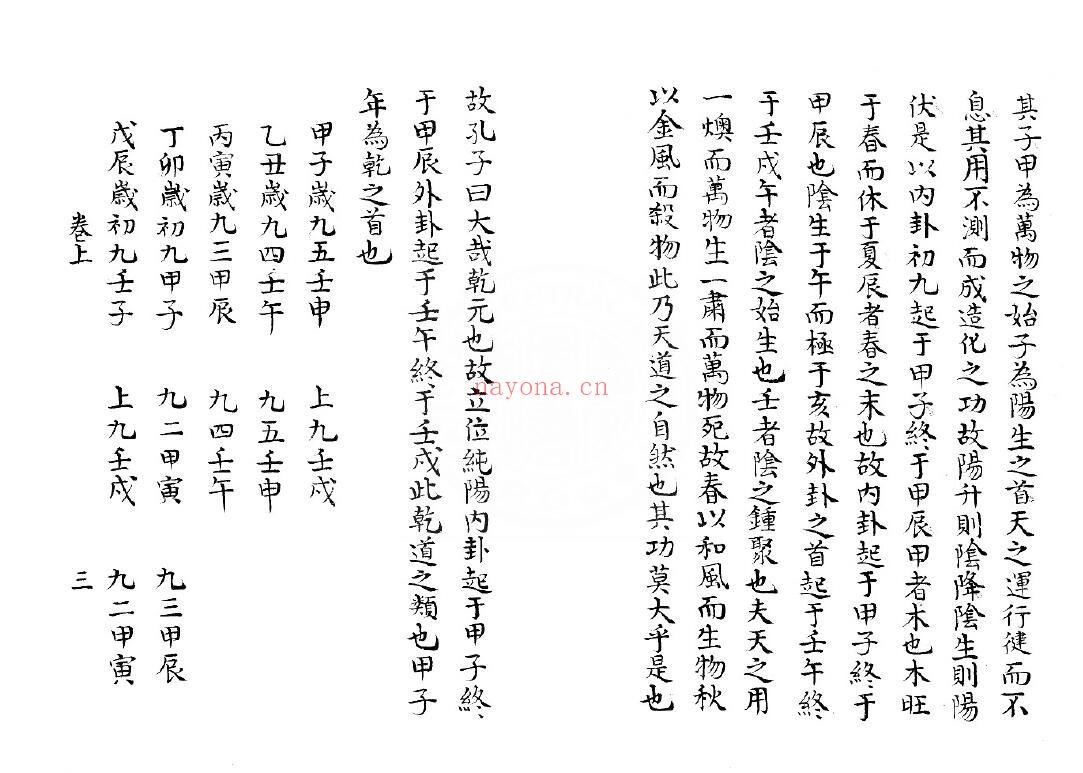 其子甲為萬物之始子為陽生之首天之運行健而不
息其用不測而成造化之功故陽升則陰降陰生則陽
伏是以內卦初九起于甲子終于甲辰甲者木也木旺
于春而休于夏辰者春之末也故內卦起于甲子終于
甲辰也陰生于午而極于亥故外卦之首起于壬午終
于壬戌午者陰之始生也壬者陰之鍾聚也夫天之用
一燠而萬物生一肅而萬物死故春以和風而生物秋
以金風而殺物此乃天道之自然也其功莫大乎是也
故孔子曰大哉乾元也故立位純陽內卦起于甲子終
于甲辰外卦起于壬午終于壬戌此乾道之類也甲子
年為乾之首也
甲子歲九五壬申 上九壬戌
乙丑歲九四壬午 九五壬申
丙寅歲九三甲辰 九四壬午
丁卯歲初九甲子 九二甲寅 九三甲辰
戊辰歲初九壬子 上九壬戌 九二甲寅
卷上 三
nayona.cn